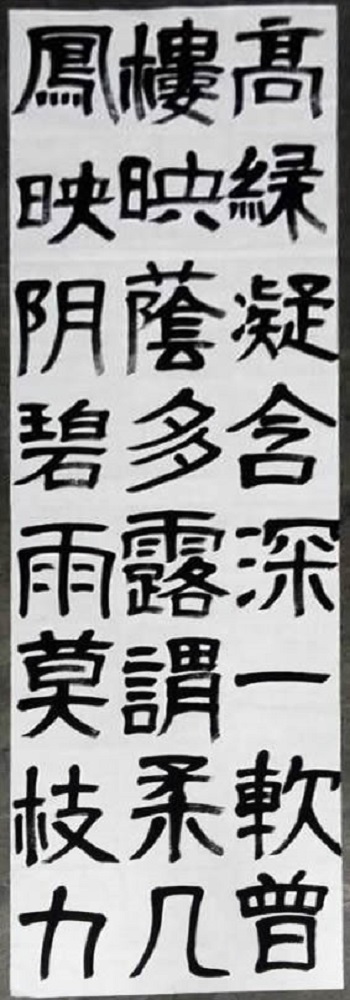 高緑凝含深一軟曾
樓映蔭多露謂柔几
鳳映阴碧雨莫枝力